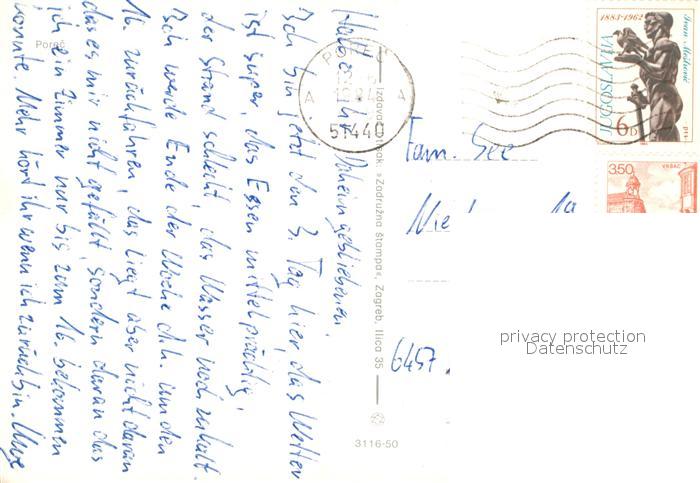 Poreč
Hallo ihr Daheimgebliebenen!
Ich bin jetzt den 3. Tag hier, das Wetter
ist super, das Essen mittelprächtig,
der Strand schlecht, das Wasser noch zu kalt.
Ich werde Ende der Woche d.h. um den
16. zurückfahren, das liegt aber nicht daran
das es mir nicht gefällt, sondern daran das
ich ein Zimmer nur bis zum 16. bekommen
konnte. Mehr hört ihr wenn ich zurück bin. Uwe
POREČ
A A
51440
»Zadružna štampa«, Zagreb, Ilica 35
3116-50
1883-1962
JUGOSLAVIJA
6D
350
VRŠAC
Fam. See
6457
privacy protection
Datenschutz